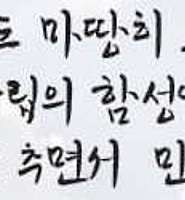 마땅히
립의 함성
추면서 민